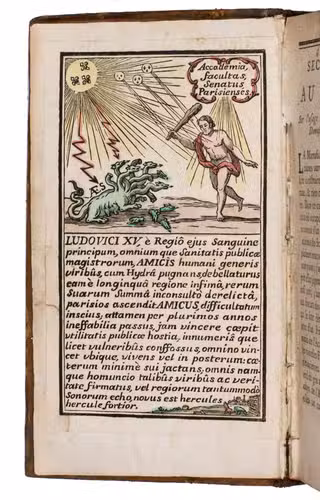 Accademia,
facultas,
Senatus
Parisienses.
ÆS
LUDOVICI XV, è Regiô ejus Sanguine
principum, omnium que Sanitatis publicæ
magistrorum, AMICIS humani generis
viribûs, cum Hydrâ pugnans, debellaturus
eam è longinquâ regione infimâ, rerum
Suarum Summâ inconsultò derelictâ,
parisios ascendit AMICUS, difficultatum
inscius, attamen per plurimos annos
ineffabilia passus, jam vincere cæpit
utilitatis publicæ hostia, innumeris que
licet vulneribûs confossus, omnino vin-
cet ubique, vivens vel in posterum: cæ-
terum minimè sui jactans, omnis nam-
que homuncio talibûs viribûs ac veri-
tate firmatus, vel regiorum tantummodò
Sonorum echo, novus est hercules
hercule fortior.
SEC
AU